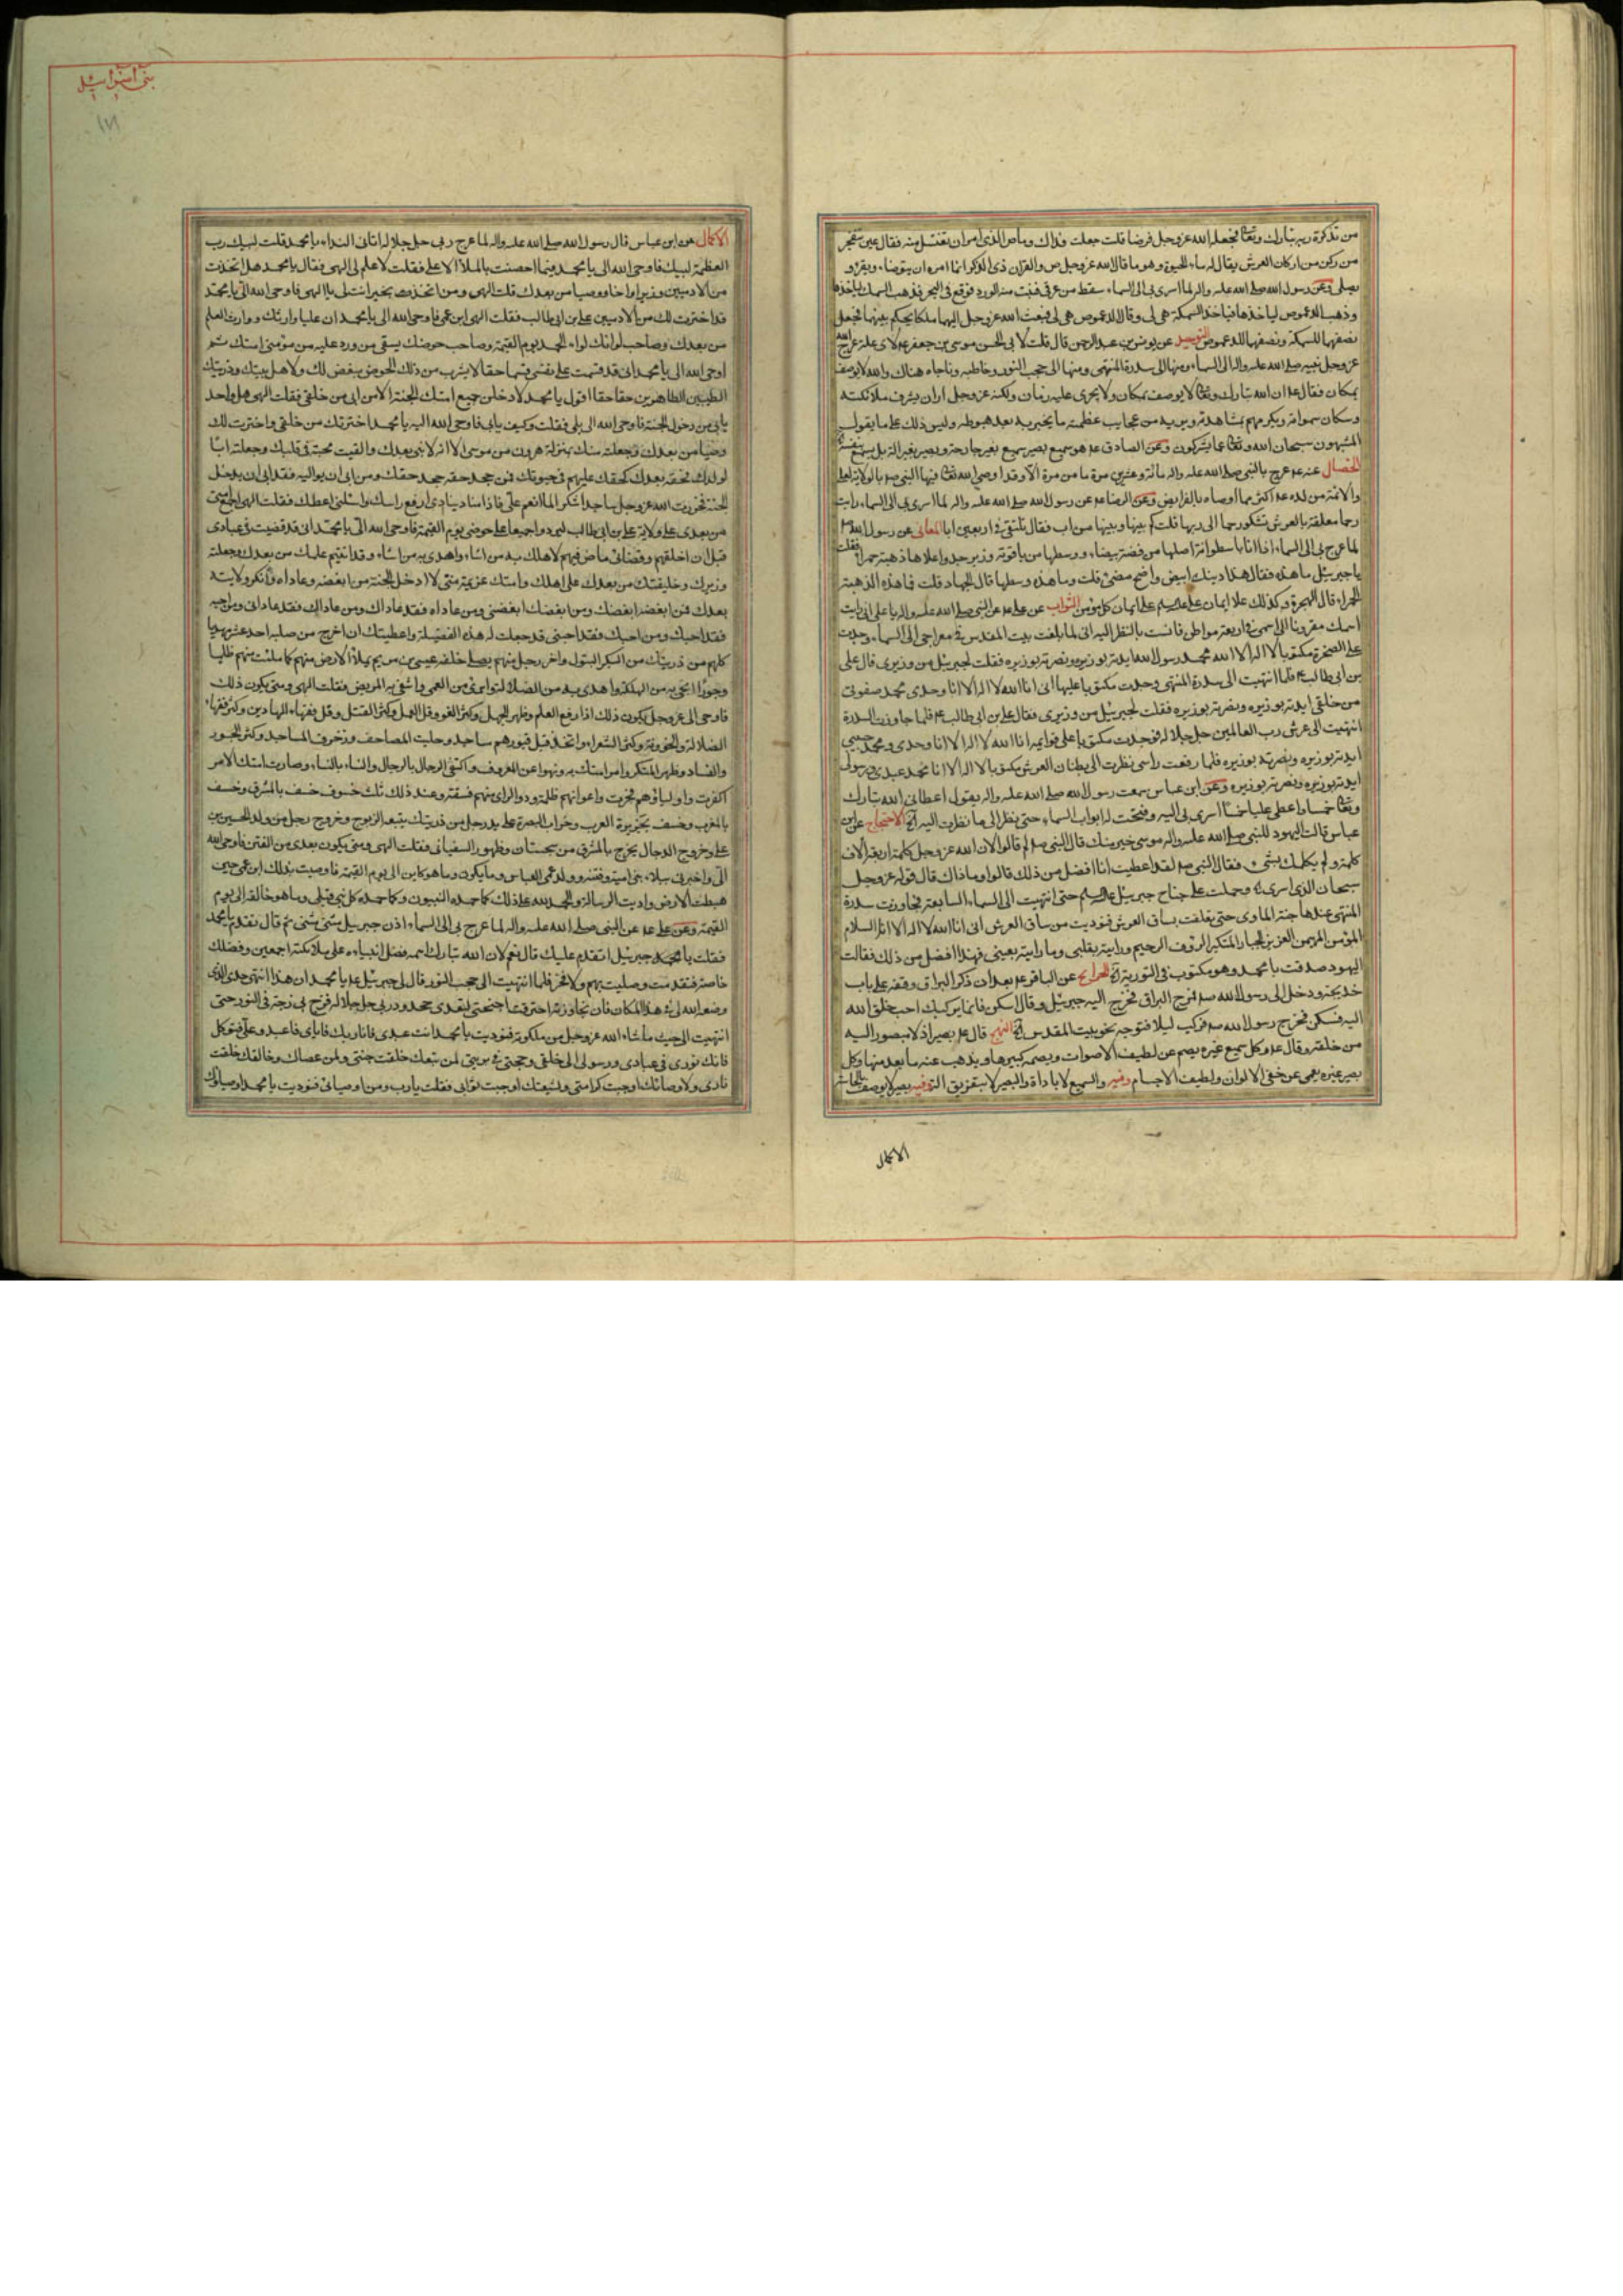 من تذكرة ربه تبارك وتعالى فجعله الله عز وجل فرضا قلت جعلت فداك وما ص الذى امر ان يغتسل منه فقال عين تنفجر
من ركن من اركان العرش يقال له ماء الحيوة وهو ما قال الله عز وجل ص والقران ذى الذكر انما امره ان يتوضاء ويقرء و
يصلى وعن رسول الله صلى الله عليه واله لما اسرى بى الى السماء سقط من عرقى فنبت منه الورد فوقع فى البحر فذهب السمك لياخذها
وذهب الدعموص لياخذها فياخذ السمكة هى لى وقال الدعموص هى لى فبعث الله عز وجل اليهما ملكا يحكم بينهما فجعل
نصفها للسمكة ونصفها للدعموص التوحيد عن يونس بن عبد الرحمن قال قلت لابى الحسن موسى بن جعفر عم لاى علة عرج الله
عز وجل نبيه صلى الله عليه واله الى السماء ومنها الى سدرة المنتهى ومنها الى حجب النور وخاطبه وناجاه هناك والله لا يوصف
بمكان فقال عم ان الله تبارك وتعالى لا يوصف بمكان ولا يجرى عليه زمان ولكنه عز وجل اراد ان يشرف ملائكته
وسكان سمواته ويكرمهم بمشاهدته ويريه من عجايب عظمته ما يخبر به بعد هبوطه وليس ذلك على ما يقول
المشبهون سبحان الله وتعالى عما يشركون وعن الصادق عم هو سميع بصير سميع بغير جارحة وبصير بغير الة بل يسمع بنفسه
الخصال عنه عم عرج بالنبى صلى الله عليه واله مائة وعشرين مرة ما من مرة الا وقد اوصى الله تعالى فيها النبى صم بالولاية لعلى
والائمة من لده عم اكثر مما اوصاه بالفرايض وعن الرضا عم عن رسول الله صلى الله عليه واله لما اسرى بى الى السماء رايت
رحما معلقة بالعرش تشكو رحما الى ربها قلت كم بينها وبينها من اب فقال نلتقى فى اربعين ابا المعانى عن رسول الله صم
لما عرج بى الى السماء اذا انا باسطوانة اصلها من فضة بيضاء ووسطها من ياقوتة وزبرجد واعلاها ذهبة حمراء فقلت
يا جبرئيل ما هذه فقال هذا دينك ابيض واضح مضئ قلت وما هذه وسطها قال الجهاد قلت فما هذه الذهبة
الحمراء قال الهجرة وكذلك علا ايمان على عليه السلم على ايمان كل مؤمن الثواب عن على عم عن النبى صلى الله عليه واله يا على انى رايت
اسمك مقرونا الى اسمى فى اربعة مواطن فانست بالنظر اليه انى لما بلغت بيت المقدس فى معراجى الى السماء وجدت
على الصخرة مكتوبا لا اله الا الله محمد رسول الله ايدته بوزيره ونصرته بوزيره فقلت لجبرئيل من وزيرى قال على
بن ابى طالب عم فلما انتهيت الى سدرة المنتهى وجدت مكتوبا عليها انى انا الله لا اله الا انا وحدى محمد صفوتى
من خلقى ايدته بوزيره ونصرته بوزيره فقلت لجبرئيل من وزيرى فقال على بن ابى طالب عم فلما جاوزت السدرة
انتهيت الى عرش رب العالمين جل جلاله فوجدت مكتوبا على قوايمه انا الله لا اله الا انا وحدى ومحمد حبيبى
ايدته بوزيره ونصرته بوزيره فلما رفعت راسى نظرت الى بطنان العرش مكتوبا لا اله الا انا محمد عبدى ورسولى
ايدته بوزيره ونصرته بوزيره وعن ابن عباس سمعت رسول الله صلى الله عليه واله يقول اعطانى الله تبارك
وتعالى خمسا واعطى عليا خمسا اسرى بى اليه وفتحت له ابواب السماء حتى نظر الى ما نظرت اليه الاحتجاج عن ابن
عباس قالت اليهود للنبى صلى الله عليه واله موسى خير منك قال النبى صم لم قالوا لان الله عز وجل كلمه اربعة الاف
كلمة ولم يكلمك بشئ فقال النبى صم لقد اعطيت انا افضل من ذلك قالوا وما ذاك قال قوله عز وجل
سبحان الذى اسرى وحملت على جناح جبرئيل عليه السلم حتى انتهيت الى السماء السابعة فجاوزت سدرة
المنتهى عندها جنة الماوى حتى تعلقت بساق العرش فنوديت من ساق العرش انى انا الله لا اله الا انا السلام
المؤمن المهيمن العزيز الجبار المتكبر الرؤف الرحيم ورايته بقلبى وما رايته بعينى فهذا افضل من ذلك فقالت
اليهود صدقت يا محمد وهو مكتوب فى التورية الخرايج عن الباقر عم بعد ان ذكر البراق وقفه على باب
خديجة ودخل الى رسول الله صم فمرح البراق فخرج اليه جبرئيل وقال اسكن فانما يركبك احب خلق الله
اليه فسكن فخرج رسول الله صم فركب ليلا فتوجه نحو بيت المقدس النهج قال عم بصير اذ لا منصور اليه
من خلقه وقال عم وكل سميع غيره يصم عن لطيف الاصوات ويصمه كبيرها ويذهب عنه ما بعد منها وكل
بصير غيره يعمى عن خفى الالوان ولطيف الاجسام وفيه والسميع لا باداة والبصير لا بتفريق الة وفيه بصير لا يوصف بالحاسة
الاكمال
بنى اسرائيل
الاكمال عن ابن عباس قال رسول الله صلى الله عليه واله لما عرج ربى جل جلاله اتانى النداء يا محمد قلت لبيك رب
العظمة لبيك فاوحى الله الى يا محمد فيما اختصمت الملأ الاعلى فقلت لا علم لى الهى فقال يا محمد هل اتخذت
من الادميين وزيرا واخا ووصيا من بعدك قلت الهى ومن اتخذ تخير انت لى يا الهى فاوحى الله الى يا محمد
قد اخترت لك من الادميين على بن ابى طالب فقلت الهى ابن عمى فاوحى الله الى يا محمد ان عليا وارثك ووارث العلم
من بعدك وصاحب لوائك لواء الحمد يوم القيمة وصاحب حوضك يسقى من ورد عليه من مؤمنى امتك ثم
اوحى الله الى يا محمد انى قد قسمت على نفسى قسما حقا لا يشرب من ذلك الحوض مبغض لك ولاهل بيتك وذريتك
الطيبين الطاهرين حقا حقا اقول يا محمد لادخلن جميع امتك الجنة الا من ابى من خلقى فقلت الهى هل واحد
يابى من دخول الجنة فاوحى الله الى بلى فقلت وكيف يابى فاوحى الله اليه يا محمد اخترتك من خلقى واخترت لك
وصيا من بعدك وجعلته منك بمنزلة هرون من موسى الا انه لا نبى بعدك والقيت محبته فى قلبك وجعلته ابا
لولدك فحقه بعدك كحقك عليهم فى حيوتك فمن جحد حقه جحد حقك ومن ابى ان يواليه فقد ابى ان يدخل
الجنة فخررت لله عز وجل ساجدا شكرا لما انعم على فاذا مناد ينادى ارفع راسك واسئلنى اعطك فقلت الهى اجمع امتى
من بعدى على ولاية على بن ابى طالب ليردوا جميعا على حوضى يوم القيمة فاوحى الله الى يا محمد انى قد قضيت فى عبادى
قبل ان اخلقهم وقضائى ماض فيهم لاهلك به من اشاء واهدى به من اشاء وقد اتيته علمك من بعدك وجعلته
وزيرك وخليفتك من بعدك على اهلك وامتك عزيمة منى لا ادخل الجنة من ابغضه وعاداه وانكر ولايته
بعدك فمن ابغضه ابغضك ومن ابغضك ابغضنى ومن عاداه فقد عاداك ومن عاداك فقد عادانى ومن احبه
فقد احبك ومن احبك فقد احبنى قد جعلت له هذه الفضيلة واعطيتك ان اخرج من صلبه احد عشر مهديا
كلهم من ذريتك من البكر البتول واخر رجل منهم يصلى خلفه عيسى بن مريم يملأ الارض منهم كما ملئت منهم ظلما
وجورا انجى به من الهلكة واهدى به من الضلالة وابرئ من العمى واشفى به المريض فقلت الهى ومتى يكون ذلك
فاوحى الى عز وجل يكون ذلك اذا رفع العلم وظهر الجهل وكثر الغو وقل العمل وكثر القتل وقل فقهاء الهادين وكثر فقهاء
الضلالة والخونة وكثر الشعراء واتخذ قبل قبورهم مساجد وحليت المصاحف وزخرف المساجد وكثر الجور
والفساد وظهر المنكر وامر امتك به ونهوا عن المعروف واكتفى الرجال بالرجال والنساء بالنساء وصارت امتك الامر
اكفرت واولياؤهم فجرت واعوانهم ظلمة وذو الراى منهم فسقة وعند ذلك ثلث خسوف خسف بالمشرق وخسف
بالمغرب وخسف بجزيرة العرب وخراب البصرة على يد رجل من ذريتك يتبعه الزنوج وخروج رجل من ولد الحسين بن
على وخروج الدجال يخرج بالمشرق من سجستان وظهور السفيانى فقلت الهى ومتى يكون بعدى من الفتن فاوحى الله
الى واخبرنى ببلاء بنى امية وفتنة ولد عمى العباس وما يكون وما هو كاين الى يوم القيمة فاوصيت بذلك ابن عمى حين
هبطت الارض واديت الرسالة والحمد لله على ذلك كما حمده النبيون وكما حمده كل نبى قبلى وما هو خالقه الى يوم
القيمة وعن على عم عن النبى صلى الله عليه واله لما عرج بى الى السماء اذن جبرئيل مثنى مثنى ثم قال تقدم يا محمد
فقلت يا جبرئيل اتقدم عليك قال نعم لان الله تبارك اسمه فضل انبياءه على ملائكته اجمعين وفضلك
خاصة فتقدمت وصليت بهم ولا فخر فلما انتهيت الى حجب النور قال لى جبرئيل عم يا محمد ان هذا انتهى حدى الذى
وضع الله لى فى هذا المكان فان تجاوزته احترقت اجنحتى لتعدى حدود ربى جل جلاله فزخ بى زخة فى النور حتى
انتهيت الى حيث ما شاء الله عز وجل من ملكوته فنوديت يا محمد انت عبدى وانا ربك فاياى فاعبد وعلى فتوكل
فانك نورى فى عبادى ورسولى الى خلقى وحجتى فى بريتى لمن تبعك خلقت جنتى ولمن عصاك وخالفك خلقت
نارى ولاوصيائك اوجبت كرامتى ولشيعتك اوجبت ثوابى فقلت يا رب ومن اوصيائى فنوديت يا محمد اوصياؤك